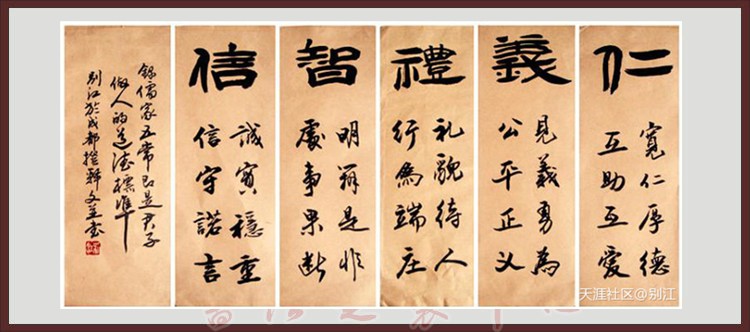 仁
寬仁厚德
互助互愛
義
見義勇為
公平正义
禮
礼貌待人
行為端庄
智
明辨是非
處事果断
信
誠實穩重
信守諾言
錄儒家五常即是君子
做人的道德標準
別江於成都撰釋文並書
天涯社区@别江